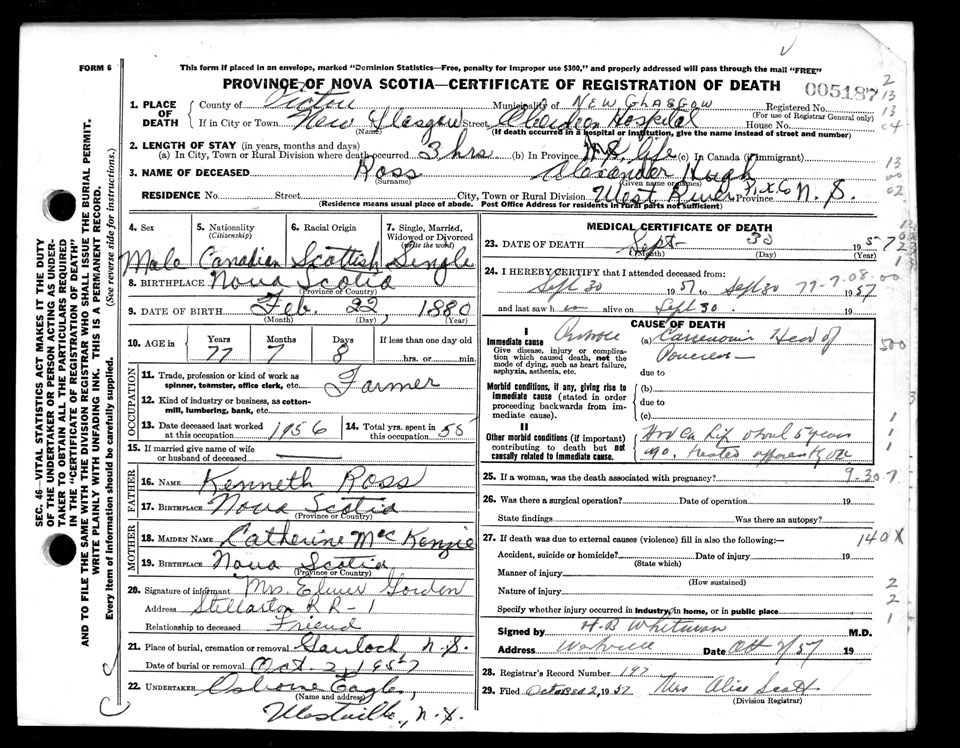 FORM 6
This form if placed in an envelope, marked "Dominion Statistics—Free, penalty for improper use $300," and properly addressed will pass through the mail "FREE"
PROVINCE OF NOVA SCOTIA—CERTIFICATE OF REGISTRATION OF DEATH
005187
SEC. 46—VITAL STATISTICS ACT MAKES IT THE DUTY OF THE UNDERTAKER OR PERSON ACTING AS UNDERTAKER TO OBTAIN ALL THE PARTICULARS REQUIRED IN THE "CERTIFICATE OF REGISTRATION OF DEATH" AND TO FILE THE SAME WITH THE DIVISION REGISTRAR WHO SHALL ISSUE THE BURIAL PERMIT.
WRITE PLAINLY WITH UNFADING INK. THIS IS A PERMANENT RECORD.
Every item of information should be carefully supplied. (See reverse side for instructions.)
1. PLACE OF DEATH County of Pictou Municipality of NEW GLASGOW Registered No. (For use of Registrar General only)
If in City or Town New Glasgow (Name) Street Aberdeen Hospital House No.
(If death occurred in a hospital or institution, give the name instead of street and number)
2. LENGTH OF STAY (in years, months and days)
(a) In City, Town or Rural Division where death occurred 3 hrs (b) In Province N.S. life (c) In Canada (if immigrant)
3. NAME OF DECEASED Ross (Surname) Alexander Hugh (Given name or names)
RESIDENCE No. Street City, Town or Rural Division West River Pix Co Province N. S.
(Residence means usual place of abode. Post Office Address for residents in rural parts not sufficient)
4. Sex 5. Nationality (Citizenship) 6. Racial Origin 7. Single, Married, Widowed or Divorced (write the word)
Male Canadian Scottish Single
8. BIRTHPLACE Nova Scotia (Province or Country)
9. DATE OF BIRTH Feb. 22, 1880
(Month) (Day) (Year)
10. AGE in Years Months Days If less than one day old
77 7 8 hrs. or min.
OCCUPATION
11. Trade, profession or kind of work as spinner, teamster, office clerk, etc. Farmer
12. Kind of industry or business, as cotton-mill, lumbering, bank, etc.
13. Date deceased last worked at this occupation 1956 14. Total yrs. spent in this occupation 55
15. If married give name of wife or husband of deceased
FATHER
16. NAME Kenneth Ross
17. BIRTHPLACE Nova Scotia
(Province or Country)
MOTHER
18. MAIDEN NAME Catherine McKenzie
19. BIRTHPLACE Nova Scotia
(Province or Country)
20. Signature of informant Mrs. Elmer Gordon
Address Stellarton RR-1
Relationship to deceased Friend
21. Place of burial, cremation or removal Gairloch, N.S.
Date of burial or removal Oct. 2, 1957
22. UNDERTAKER Osborne Eagles,
(Name and address)
Westville, N.S.
MEDICAL CERTIFICATE OF DEATH
23. DATE OF DEATH Sept 30 1957
(Month) (Day)
24. I HEREBY CERTIFY that I attended deceased from:
Sept 30 1957 to Sept 30 1957
77-7.08.00
and last saw h im alive on Sept 30. 19
CAUSE OF DEATH
I
Immediate cause (a) Carcinoma Head of Pancreas
Give disease, injury or complication which caused death, not the mode of dying, such as heart failure, asphyxia, asthenia, etc.
due to
Morbid conditions, if any, giving rise to immediate cause (stated in order proceeding backwards from immediate cause).
(b)
due to
(c)
II
Other morbid conditions (if important) contributing to death but not causally related to immediate cause.
Had Ca Lip about 5 years ago. treated
25. If a woman, was the death associated with pregnancy? 9.30-7
26. Was there a surgical operation? Date of operation 19
State findings Was there an autopsy?
27. If death was due to external causes (violence) fill in also the following:— 140X
Accident, suicide or homicide? Date of injury 19
(State which)
Manner of injury
(How sustained)
Nature of injury
Specify whether injury occurred in industry, in home, or in public place
Signed by H.B Whitman M.D.
Address Westville Date Oct 2/57 19
28. Registrar's Record No. 197
29. Filed October 2, 1957 Mrs Alice Scott
(Division Registrar)